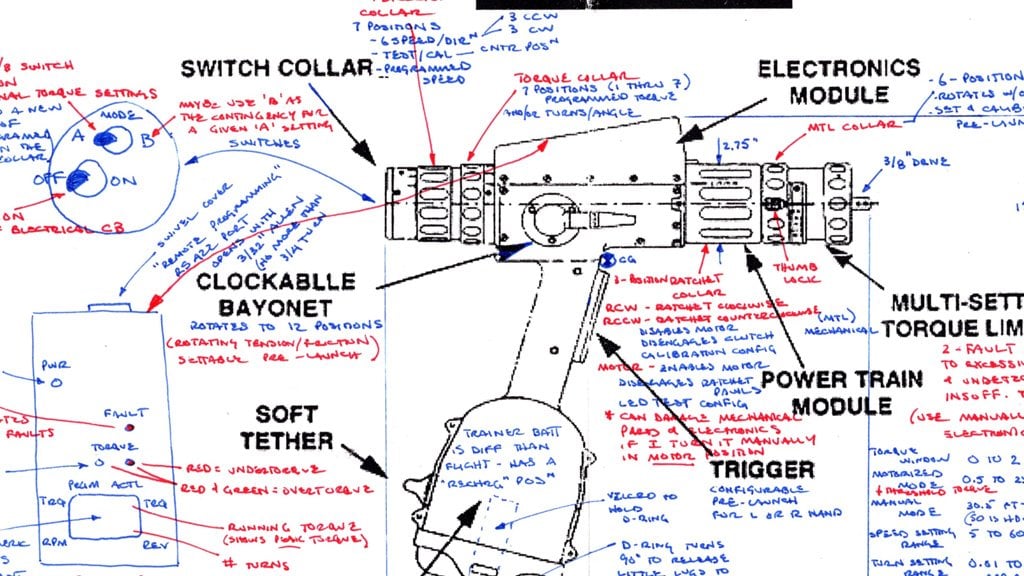 COLLAR
7 POSITIONS
- 6 SPEED/DIRN
3 CCW
3 CW
- TEST/CAL — CNTR POSN
- PROGRAMMED
SPEED
/8 SWITCH
ON
NAL TORQUE SETTINGS
A NEW
OF
GRAMMED
N THE
COLLAR
MODE
A
B
OFF
ON
ON
ELECTRICAL CB
MAYBE USE 'B' AS
THE CONTINGENCY FOR
A GIVEN 'A' SETTING
SWITCHES
SWITCH COLLAR
TORQUE COLLAR
7 POSITIONS (1 THRU 7)
PROGRAMMED TORQUE
AND/OR TURNS/ANGLE
ELECTRONICS
MODULE
- 6 - POSITION
- ROTATES W/O
SET & CALIB
PRE-LAUN
MTL COLLAR
2.75"
3/8" DRIVE
SWIVEL COVER
"REMOTE PROGRAMMING"
RS 422 PORT
OPENS WITH
3/32" ALLEN
(NO MORE THAN
3/4 TURN
CLOCKABLLE
BAYONET
ROTATES TO 12 POSITIONS
(ROTATING TENSION/FRICTION)
SETTABLE PRE-LAUNCH)
CG
3-POSITION RATCHET
COLLAR
RCW - RATCHET CLOCKWISE
RCCW - RATCHET COUNTERCLOCKWISE
DISABLES MOTOR
DISENGAGES CLUTCH
CALIBRATION CONFIG
MOTOR - ENABLES MOTOR
DISENGAGES RATCHET
PAWLS
LED TEST CONFIG
* CAN DAMAGE MECHANICAL
PARTS & ELECTRONICS
IF I TURN IT MANUALLY
IN MOTOR POSITION
THUMB
LOCK
MULTI-SETT
TORQUE LIM
(MTL)
MECHANICAL
2 - FAULT
TO EXCESSI
& UNDERTO
INSUFF. T
(USE MANUALL
ELECTRONIC
POWER TRAIN
MODULE
TRIGGER
CONFIGURABLE
PRE-LAUNCH
FOR L OR R HAND
SOFT
TETHER
TRAINER BATT
IS DIFF THAN
FLIGHT - HAS A
"RECHRG" POSN
VELCRO TO
HOLD
D-RING
D-RING TURNS
90° TO RELEASE
LITTLE LUGS TO
PWR
FAULT
TORQUE
PRGM ACTL
TRQ
TRQ
RPM
REV
FAULTS
RED = UNDERTORQUE
RED & GREEN = OVERTORQUE
RUNNING TORQUE
(SHOWS PEAK TORQUE)
# TURNS
TORQUE
WINDOW
0 TO 2
MOTORIZED
MODE
0.5 TO 25
* THRESHOLD TORQUE
MANUAL
MODE
30.5 FT-
(50 IS HD
SPEED SETTING
RANGE
5 TO 60
TURN SETTING
RANGE
0.01 TO